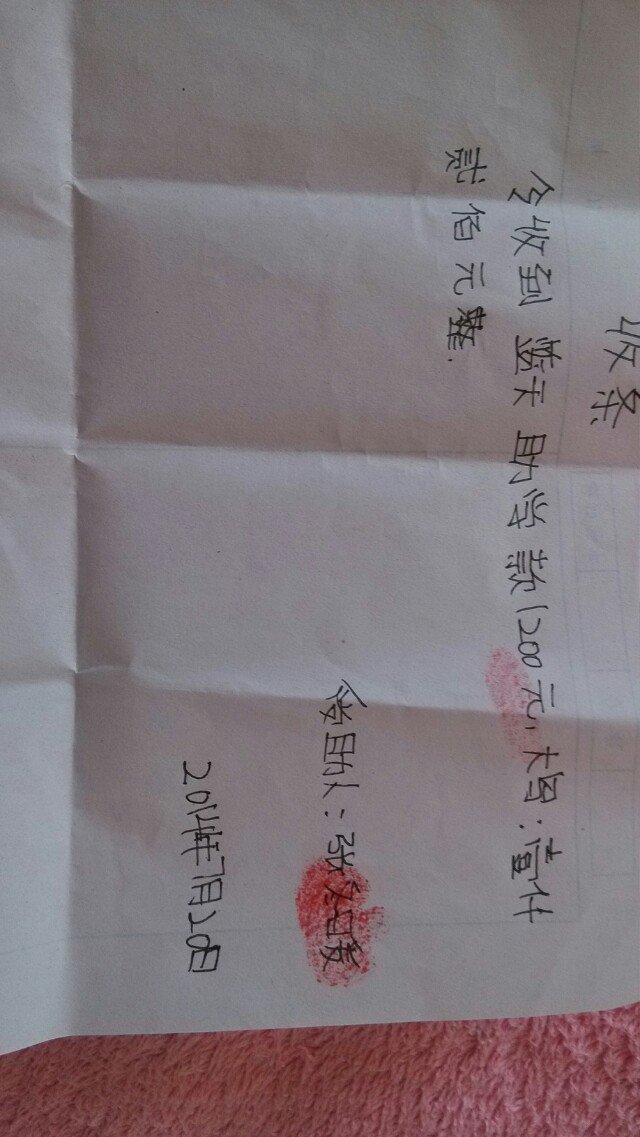 收条
今收到 蓝天 助学款1200元,大写:壹仟
贰佰元整.
助人:张
2014年7月20日